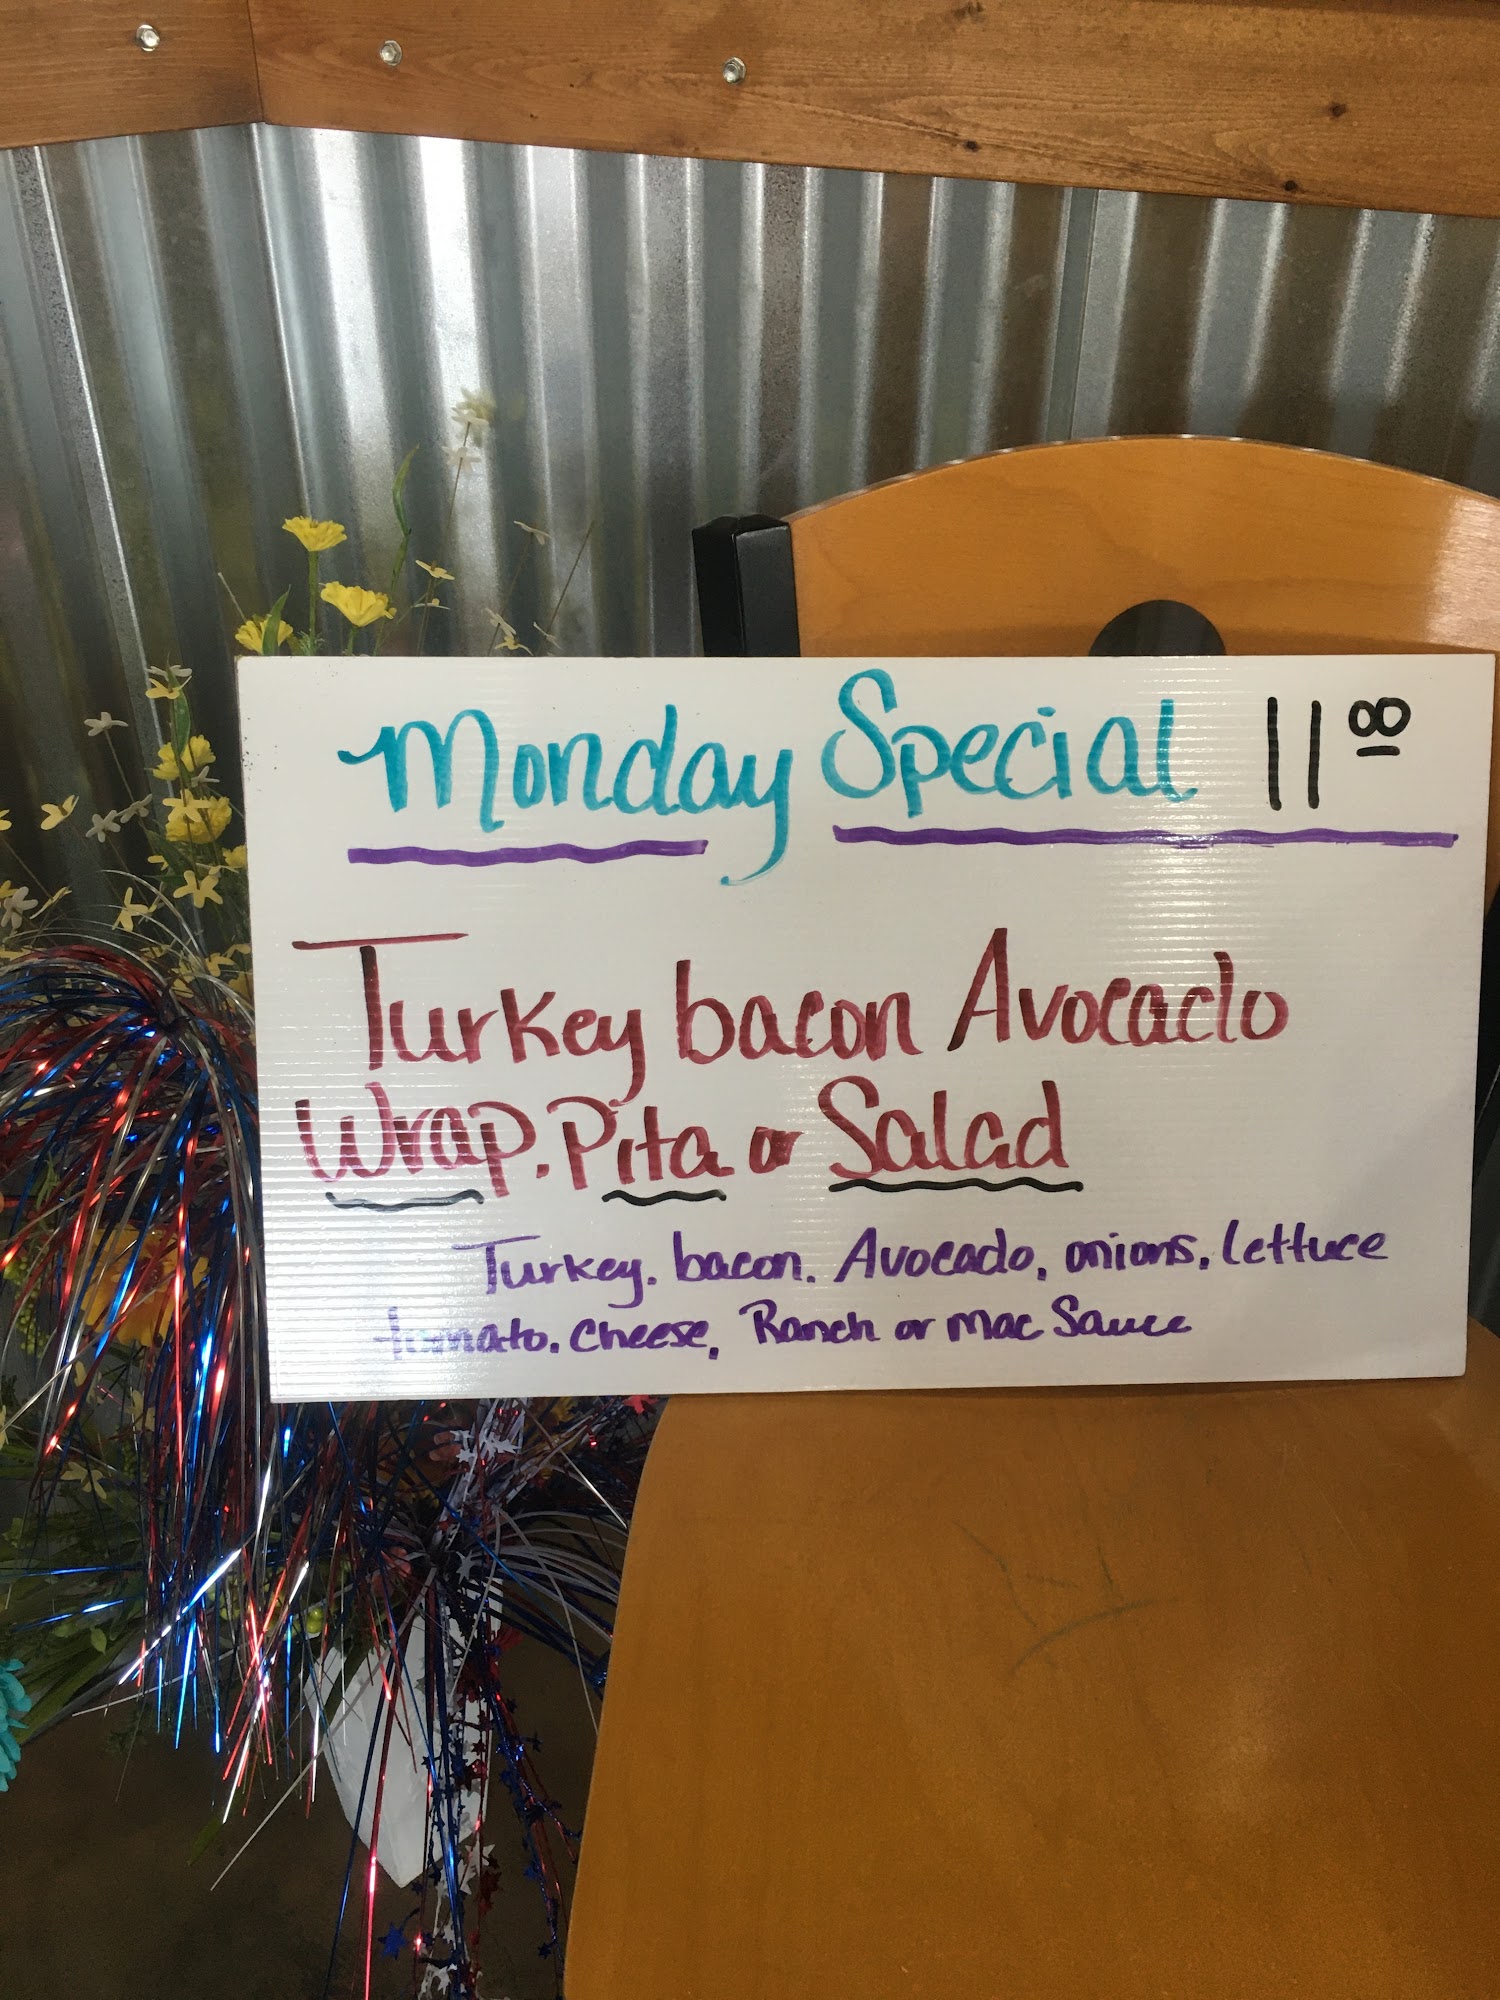 Monday Special 11 80
Turkey bacon Avocado
Wrap. Pita or Salad
Turkey. bacon. Avocado, onions. Lettuce
tomato. Cheese, Ranch or Mac Sauce